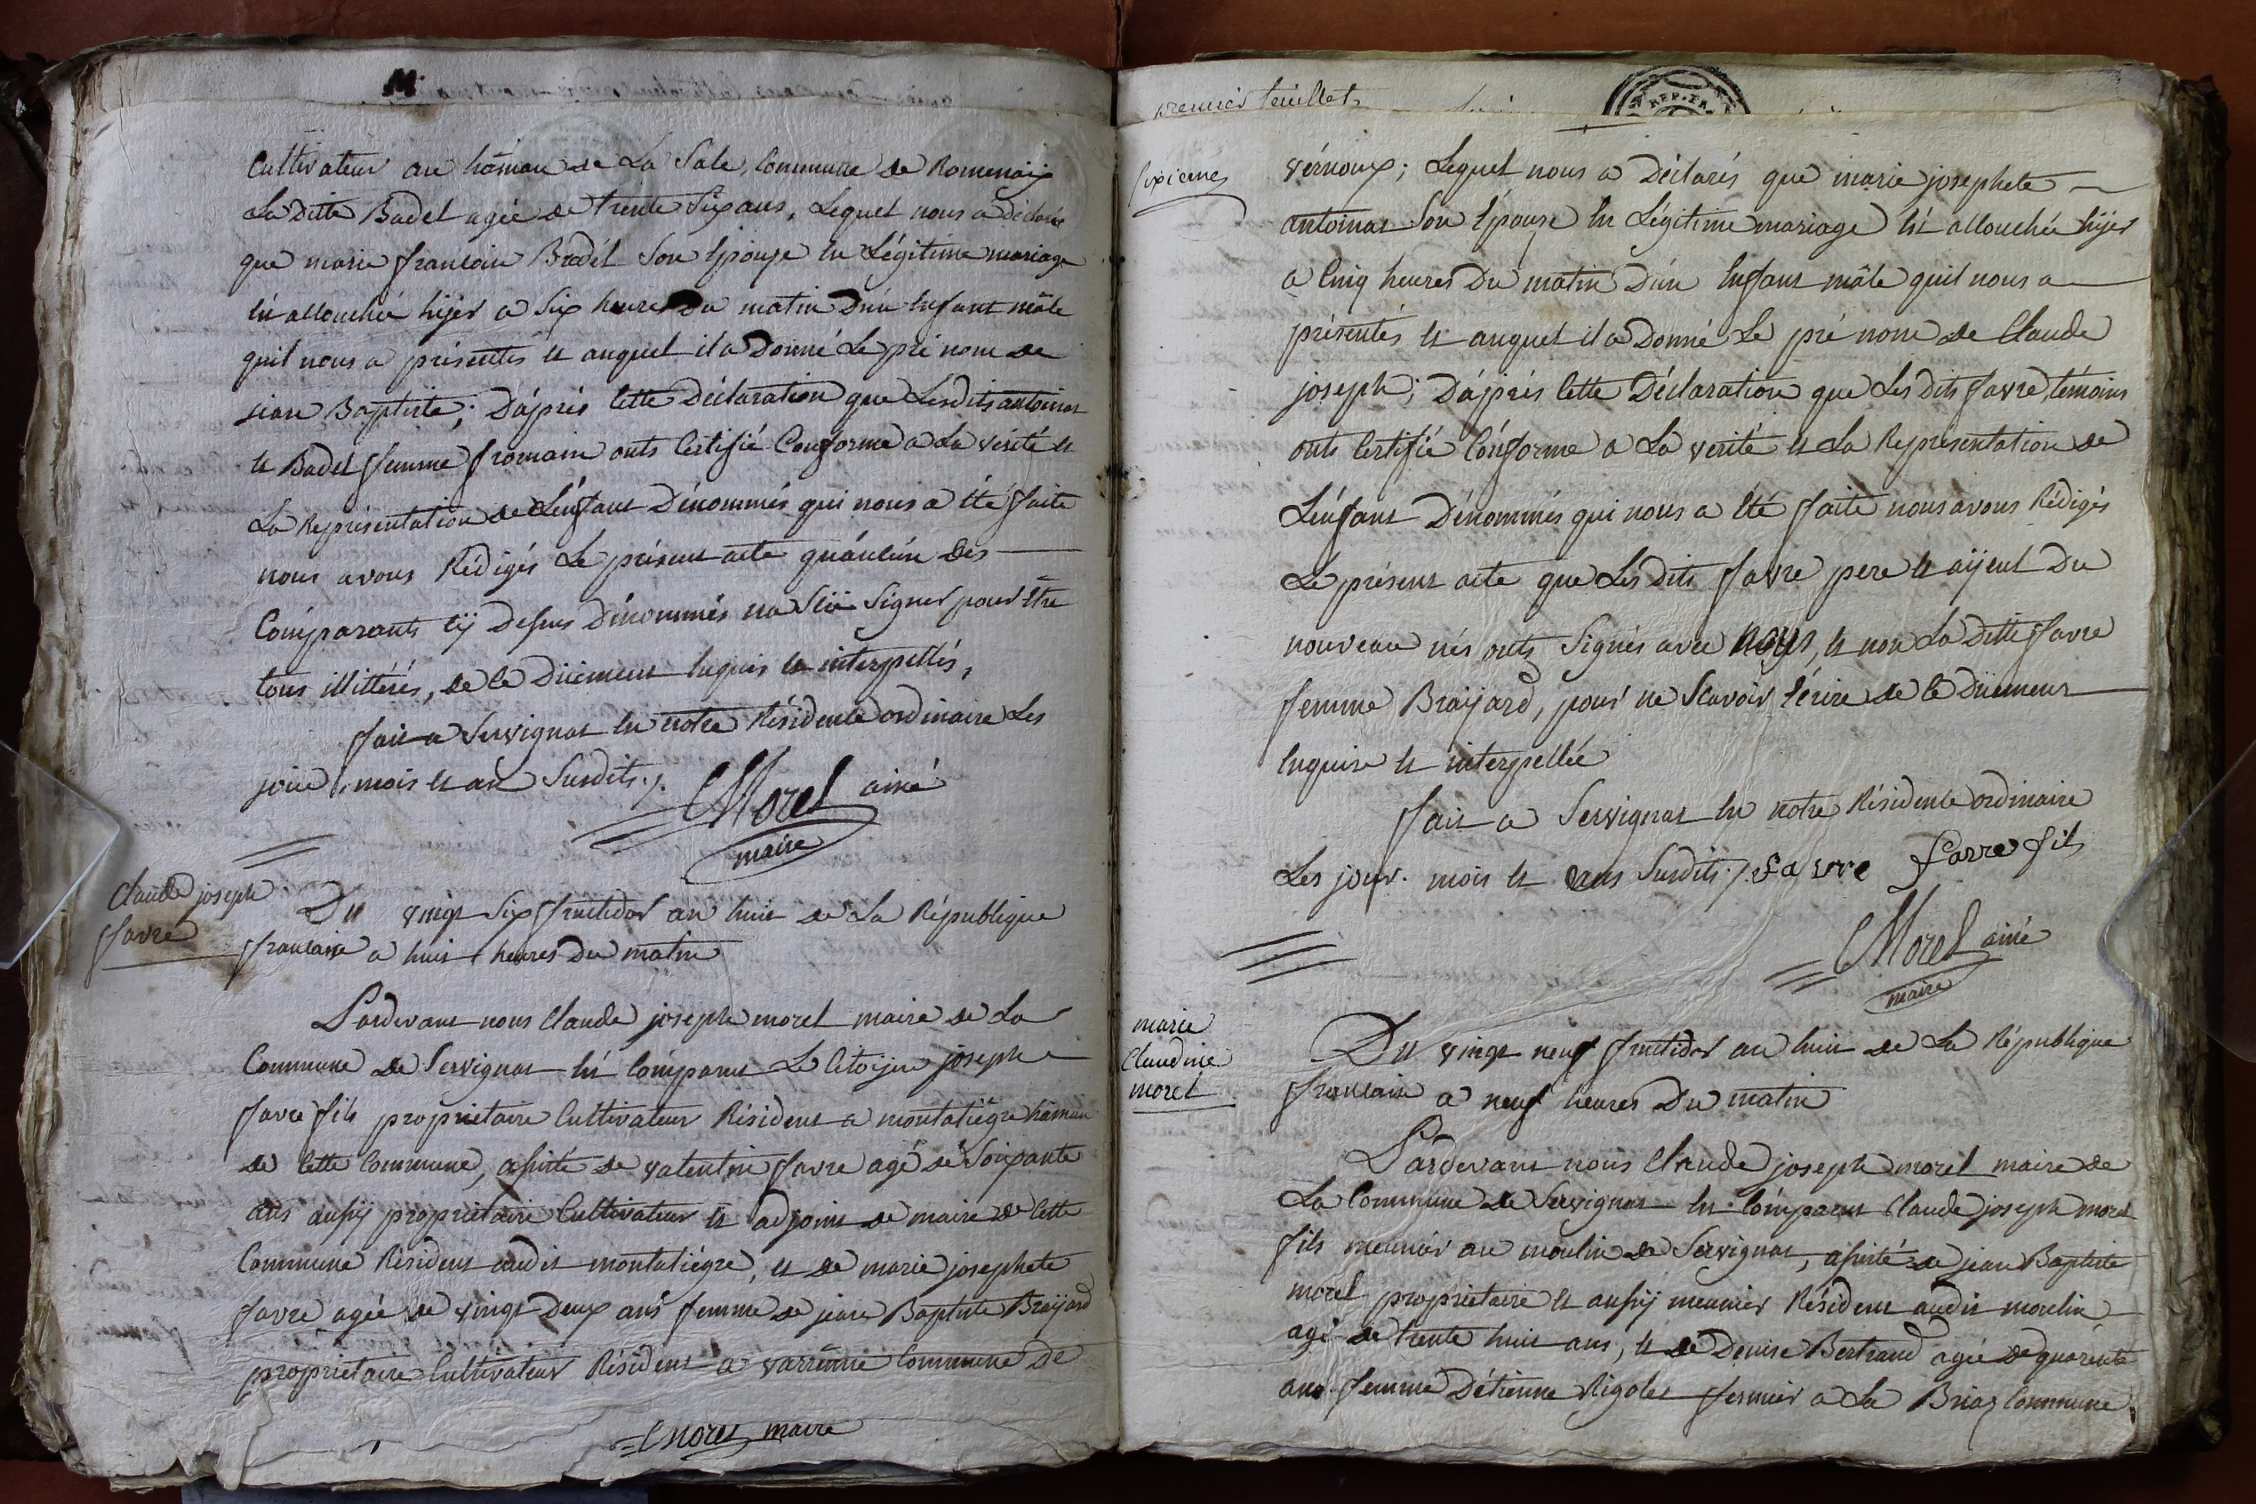 M.
Cultivateur au hámau de La Sale, Commune de Romenaÿ
La ditte Badel agée de trente Six ans, Lequel nous a déclaré
que marie francoise Badel Son épouse en Légitime mariage
ést accouchée hijer a Six heures du matin d'ún enfant mâle
quil nous a présentés et auquel il a donné Le pré nom de
jean Baptiste; D'áprés cette déclaration que Lesdits antoinat
et Badel femme fromain onts Certifié Conforme a la vérité et
La Représentation de L'énfant Dénommés qui nous a été faite
nous avons Rédigés Le présent acte qu'áucún des
Comparants cÿ desus dénommés na Sçu Signer pour être
tous illitérés, de ce Düement enquis et interpellés,
fait a Servignat en notre Résidence ordinaire Les
jour, mois et an Susdits./. Morel ainé
maire
Claude joseph
favre
Du vingt Six fructidor an huit de La République
francaise a huit heures du matin
Pardevant nous Claude joseph morel maire de La
Commune de Servignat ést Comparut Le Citoijen joseph
favre fils propriétaire Cultivateur Résident a montatiégre hámau
de Cette Commune, asisté de valentin favre agé de Soixante
ans aussÿ propriétaire Cultivateur et adjoint de maire de Cette
Commune Résident audit montatiégre, et de marie josephete
favre agée de vingt Deux ans femme de jean Baptiste Braijard
propriétaire Cultivateur Résident a varrénne Commune De
Morel maire
premier feuillet
REP. FRA
Sixieme
vérnoux; Lequel nous a Déclarés que marie josephete
antoinat Son épouse en Légitime mariage ést accouchée hijer
a Cinq heures du matin D'ún enfant mâle quil nous a
présentés et auquel il a Donné Le pré nom de Claude
joseph; D'áprés Cette Déclaration que Les dits favre, témoins
onts Certifié Cónforme a La vérité et La Représentation de
L'énfant Dénommés qui nous a été faite nous avons Rédigés
Le présent acte que Les dits favre pere et aijeul Du
nouveau nés onts Signés avec nous, et non La ditte favre
femme Braijard, pour ne Scavoir écrire de ce düement
enquise et interpellée
fait a Servignat en notre Résidence ordinaire
Les jour. mois et ans Susdits./. favre favre fils
Morel ainé
maire
marie
Claudine
morel
Du vingt neuf fructidor an huit de La République
francaise a neuf heures Du matin
Pardevant nous Claude joseph morel maire de
La Commune de Servignat ést Cómparut Claude joseph morel
fils meunier au moulin de Servignat, asisté de jean Baptiste
morel propriétaire et aussÿ meunier Résident audit moulin
agé de trente huit ans, et de Denise Bertrand agée de quarente
ans femme D'étienne Rigolet fermier a La Briaz Commune